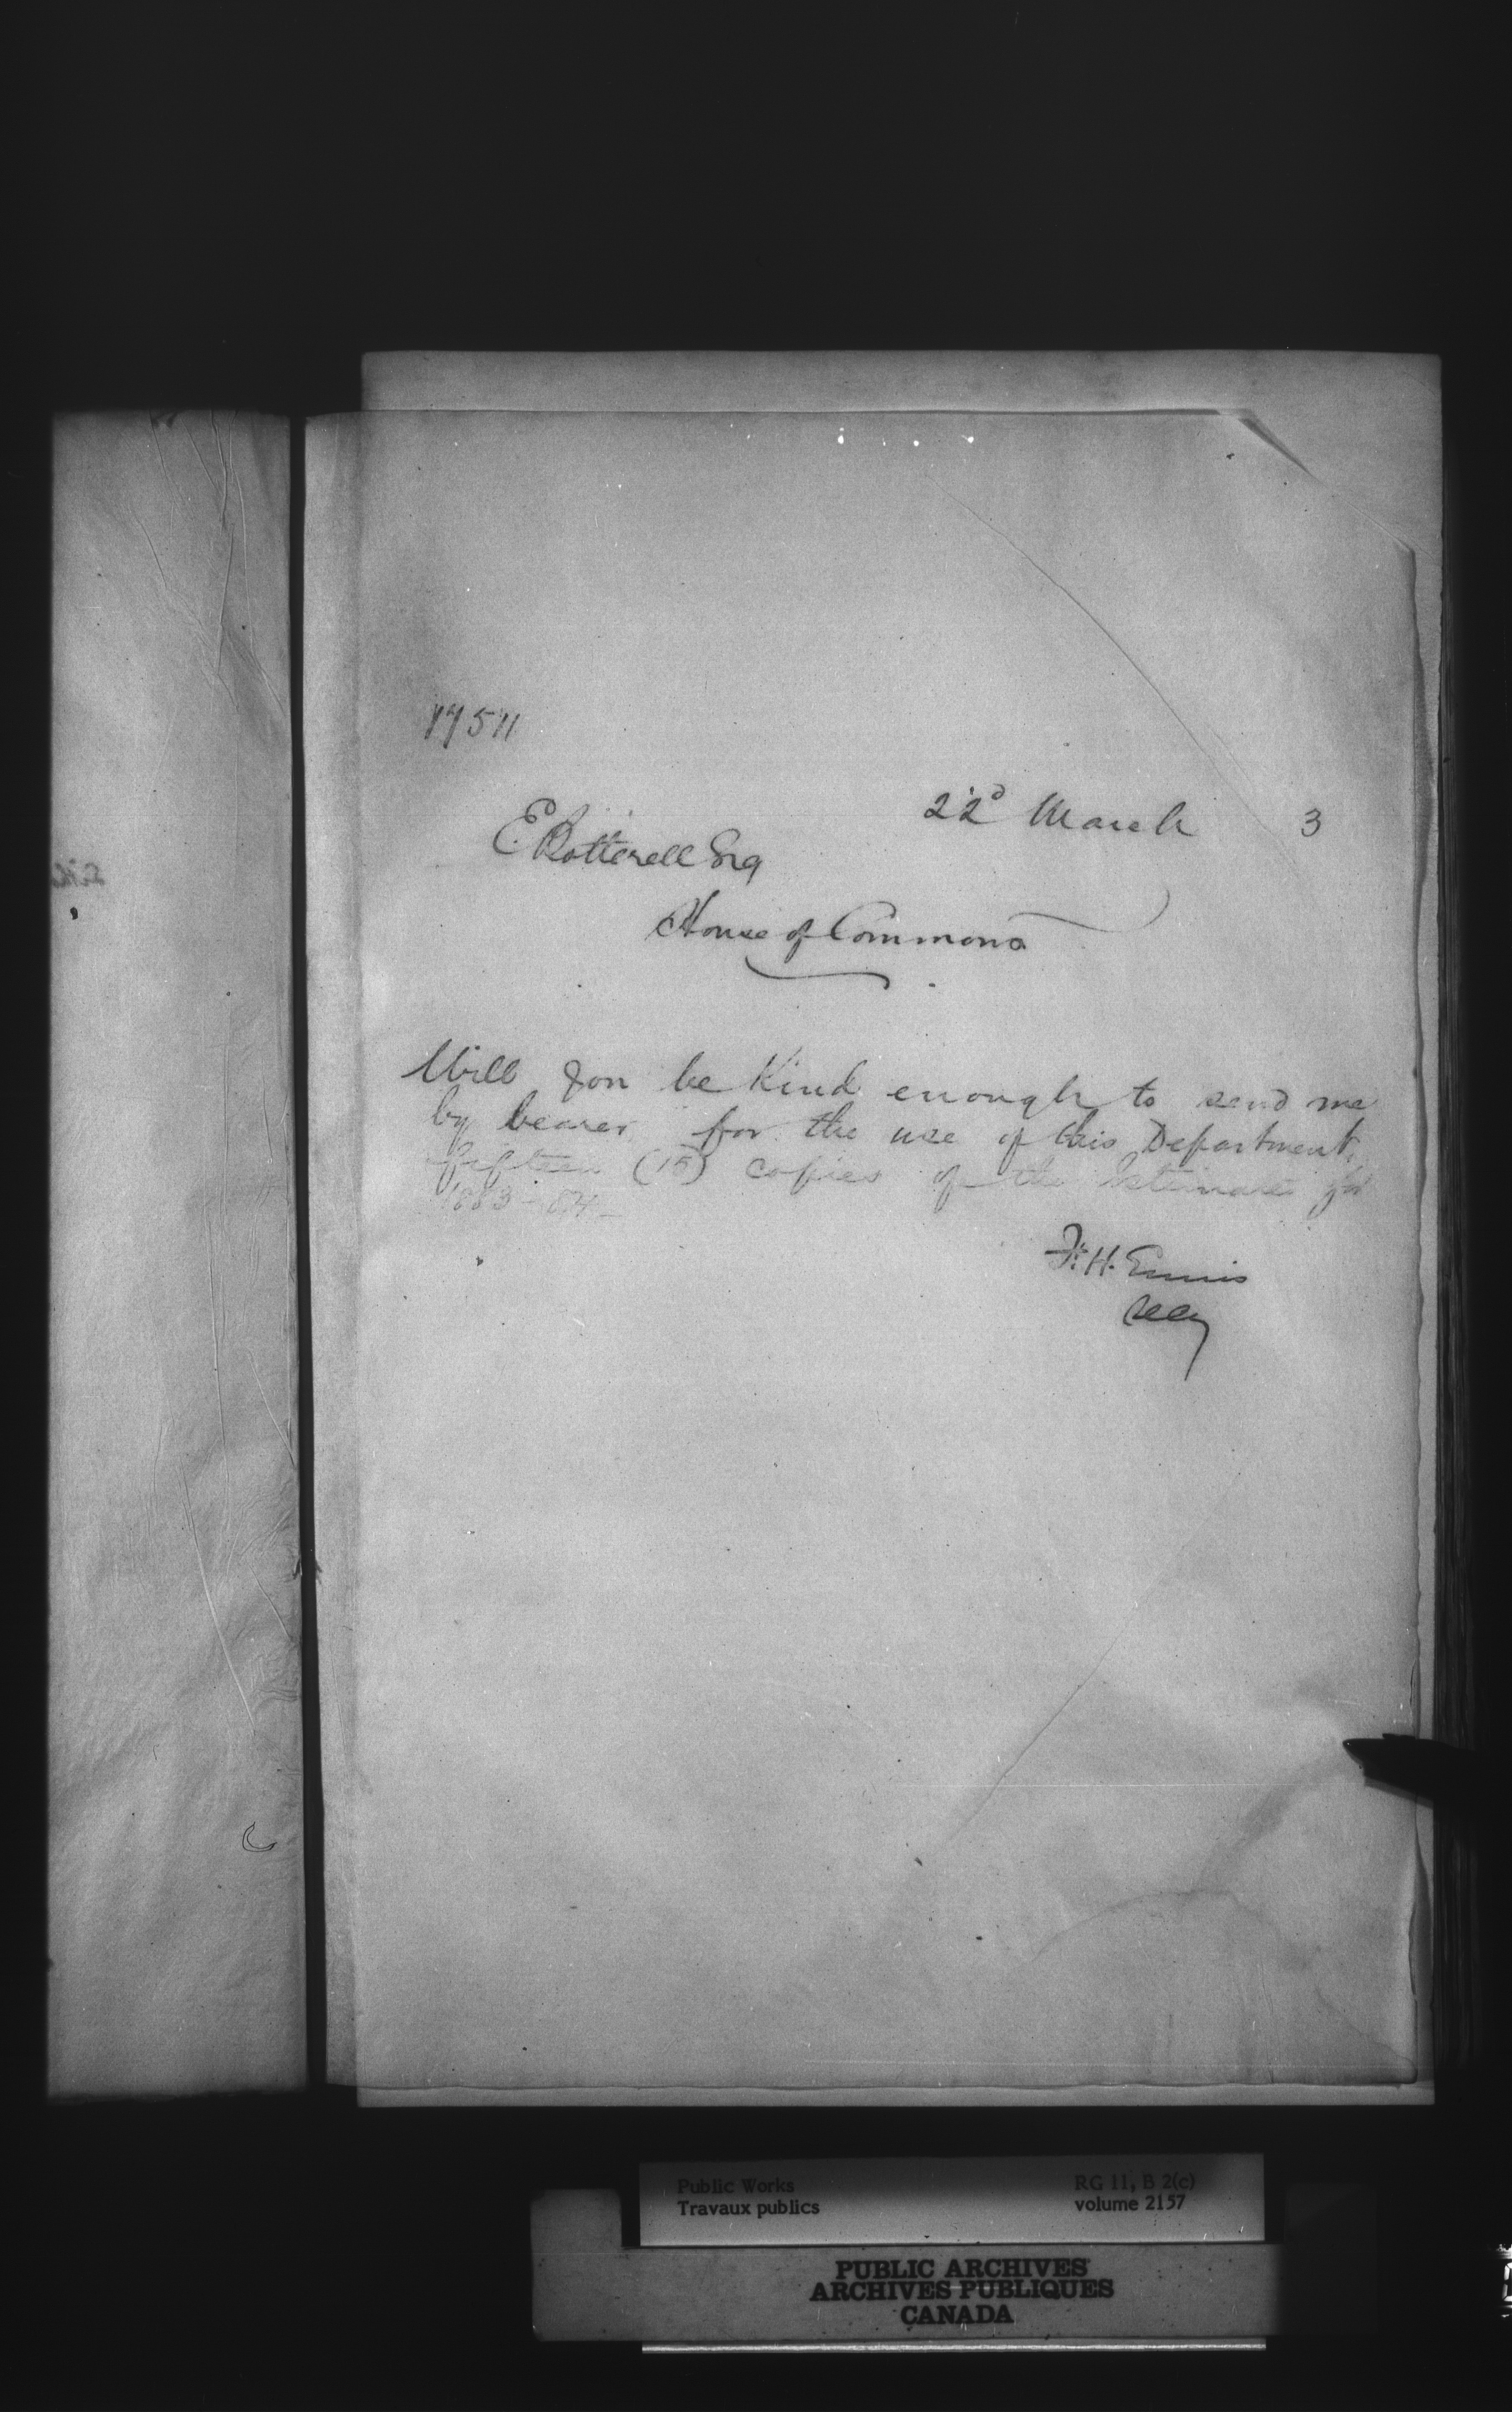 17511
22d March 3
E. Botterell Esq
House of Commons
Will you be kind enough to send me
by bearer for the use of this Department,
fifteen (15) copies of the Estimates for
1883-84-
F. H. Ennis
Secy
Public Works RG 11, B 2(c)
Travaux publics volume 2157
PUBLIC ARCHIVES
ARCHIVES PUBLIQUES
CANADA